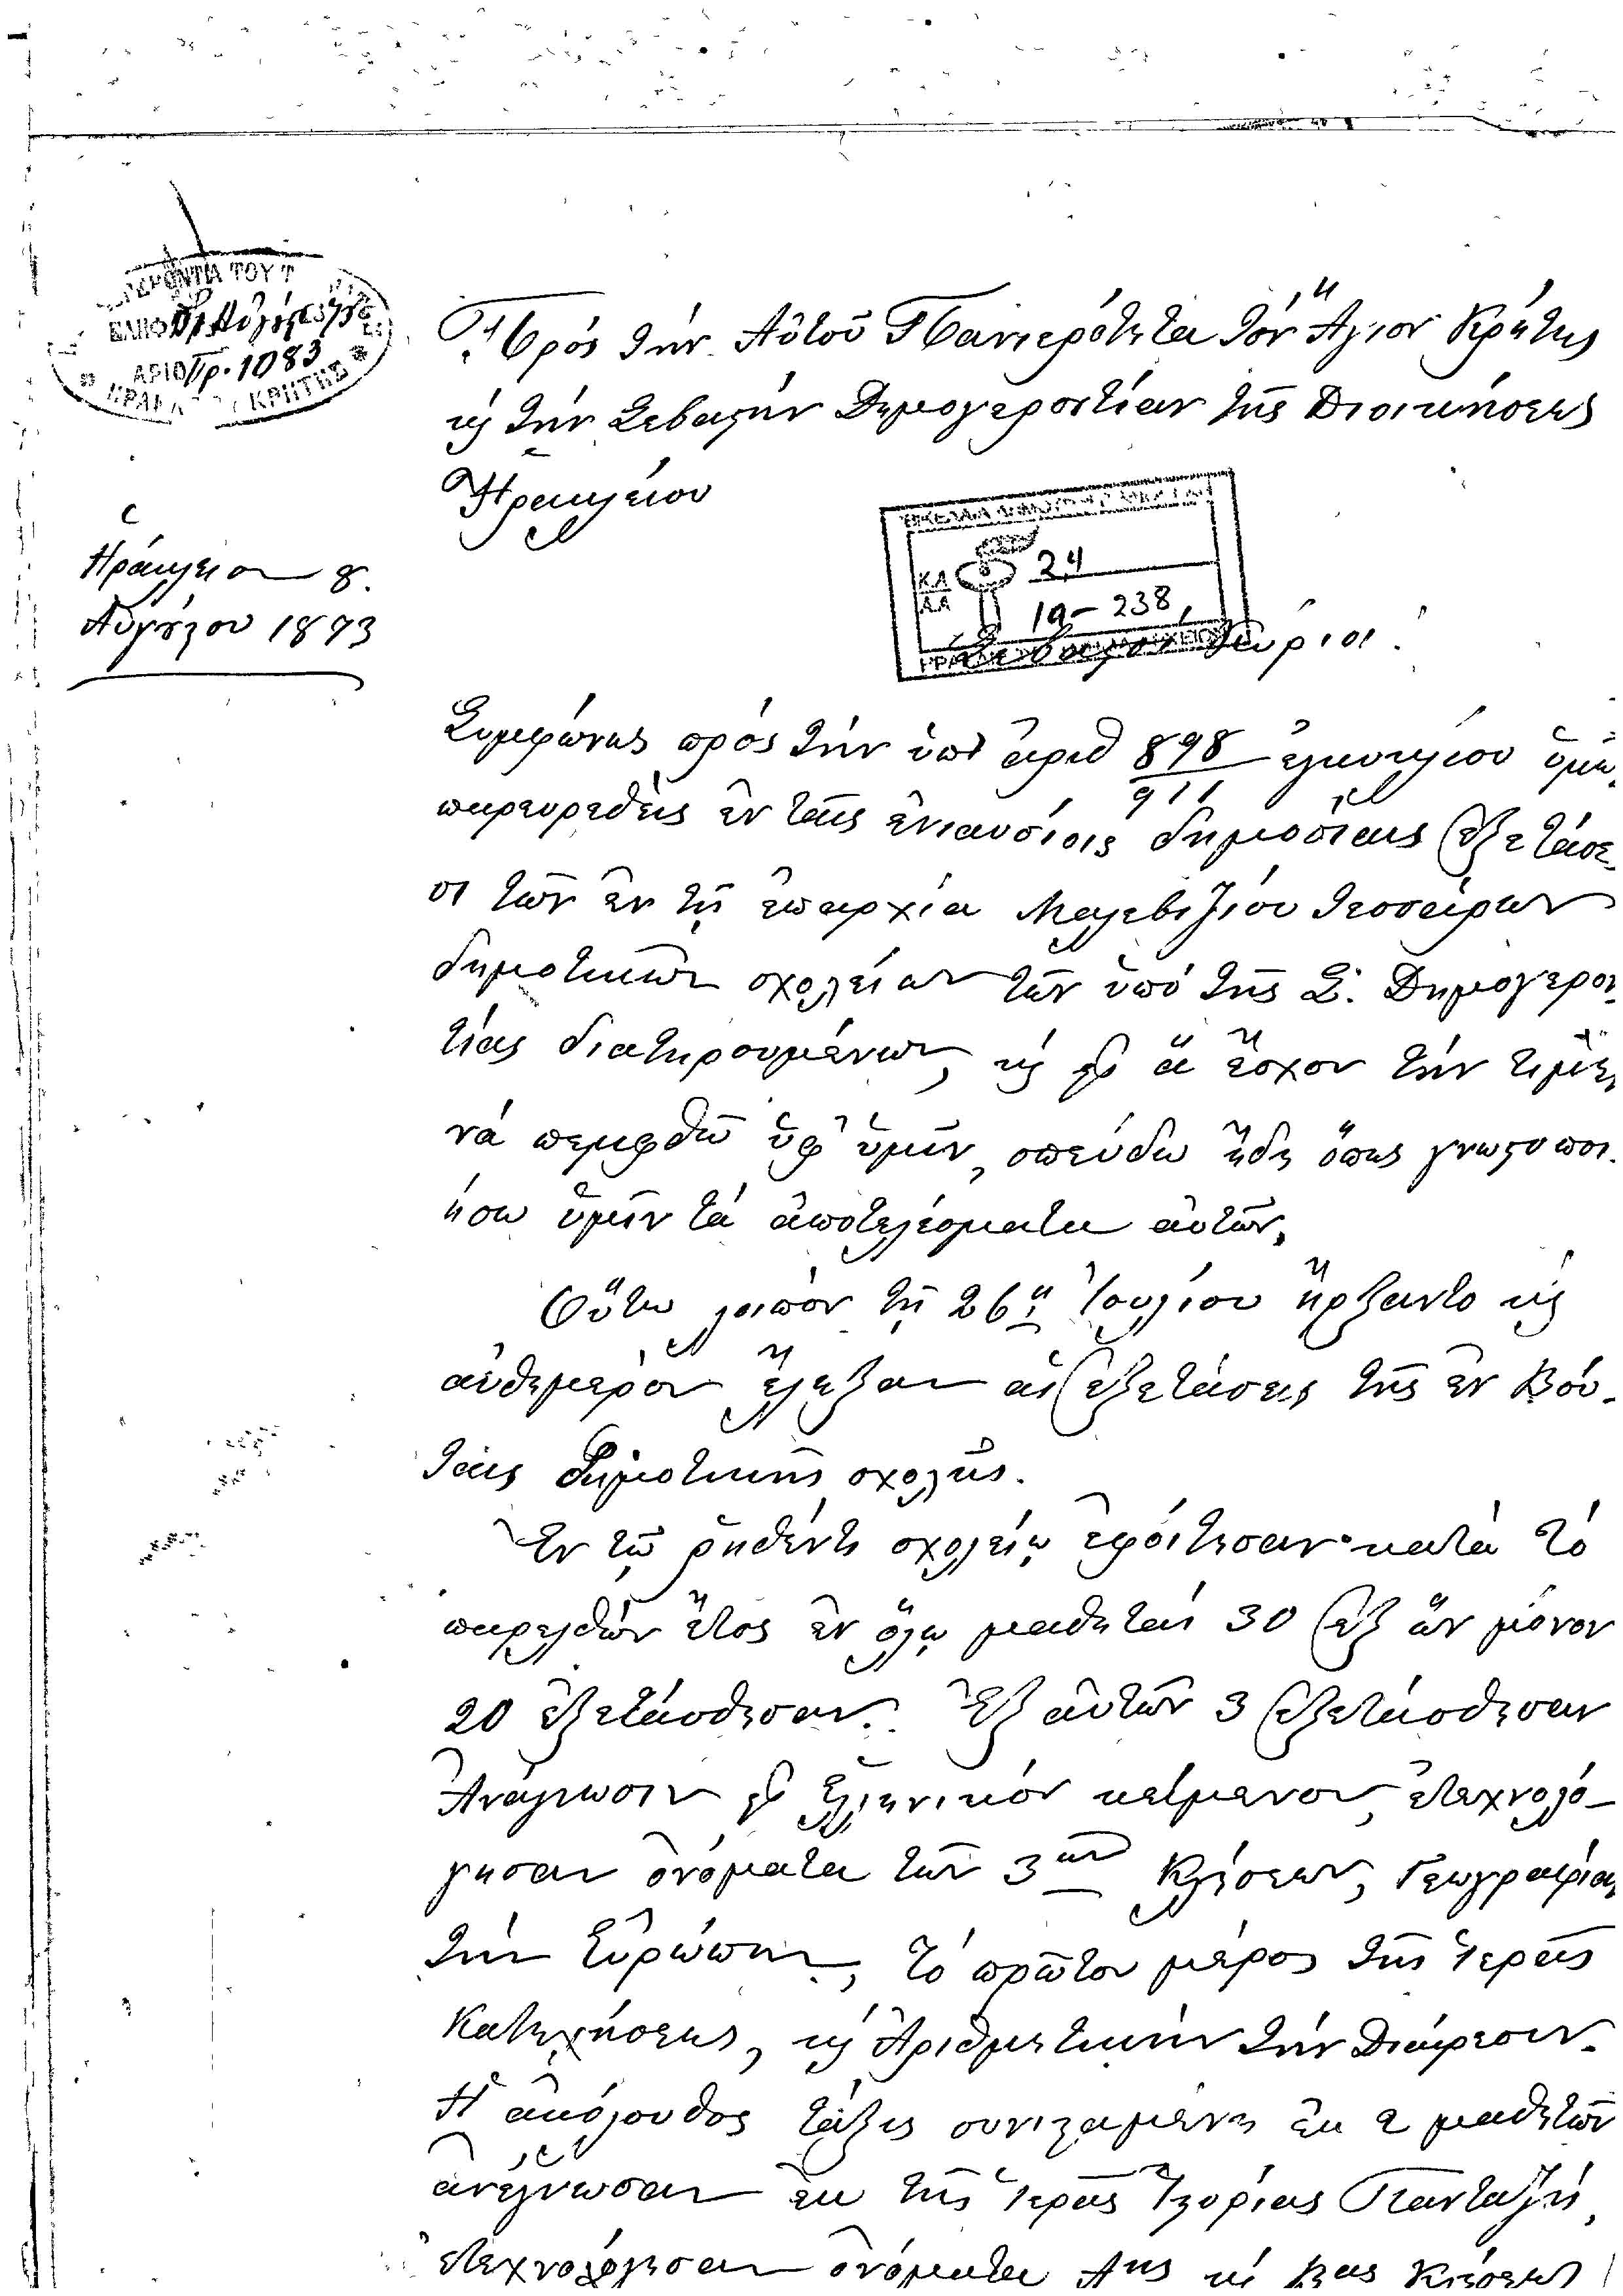 ΔΗΜΟΓΕΡΟΝΤΙΑ ΤΟΥ Τ
Αὐγούστου
ΑΡΙΘ Πρ. 1083
ΗΡΑΚΛ ΚΡΗΤΗΣ
Πρός τήν Αὐτοῦ Πανιερότητα τόν Ἅγιον Κρήτης
κỳ τήν Σεβαστήν Δημογεροντίαν τῆς Διοικήσεως
Ἡρακλείου
Ἡράκλειον 8
Αὐγούστου 1893
ΒΙΚΕΛΑΙΑ ΔΗΜΟΤΙΚΗ ΒΙΒΛΙΟΘΗΚΗ
Κ.Δ 2,4
Α.Α 19-238
Σεβαστοί Κύριοι!
Συμφώνως πρός τήν ὑπ' ἀριθ 898/911 ἐγκυκλίου ὑμῶν
παρευρεθείς ἐν ταῖς ἐνιαυσίοις δημοσίαις ἐξετάσε-
σι τῶν ἐν τῇ ἐπαρχίᾳ Μαλεβιζίου τεσσάρων
δημοτικῶν σχολείων τῶν ὑπό τῆς Σ. Δημογερον
τίας διατηρουμένων, κỳ ἐφ' ἅ ἔσχον τήν τιμήν
νά πεμφθῶ ὑφ' ὑμῶν, σπεύδω ἤδη ὅπως γνωστοποι-
ήσω ὑμῖν τά ἀποτελέσματα αὐτῶν.
Οὕτω λοιπόν τῇ 26ῃ Ἰουλίου ἤρξαντο κỳ
αὐθημερόν ἔληξαν αἱ ἐξετάσεις τῆς ἐν Βού-
ταις δημοτικῆς σχολῆς.
Ἐν τῷ ῥηθέντι σχολείῳ ἐφοίτησαν κατά τό
παρελθόν ἔτος ἐν ὅλῳ μαθηταί 30 ἐξ ὧν μόνον
20 ἐξετάσθησαν. Ἐξ αὐτῶν 3 ἐξετάσθησαν
Ἀνάγνωσιν ἐφ' Ἑλληνικόν κείμενον, ἐτεχνολό-
γησαν ὀνόματα τῶν 3ῶν Κλίσεων, Γεωγραφίαν
τήν Εὐρώπην, τό πρῶτον μέρος τῆς Ἱερᾶς
Κατηχήσεως, κỳ Ἀριθμητικήν τήν Διαίρεσιν.
Ἡ ἀκόλουθος τάξις συνισταμένη ἐκ 2 μαθητῶν
ἀνέγνωσαν ἐκ τῆς Ἱερᾶς Ἱστορίας Πανταζῆ,
ἐτεχνολόγησαν ὀνόματα Αης κỳ Βας Κλίσεως